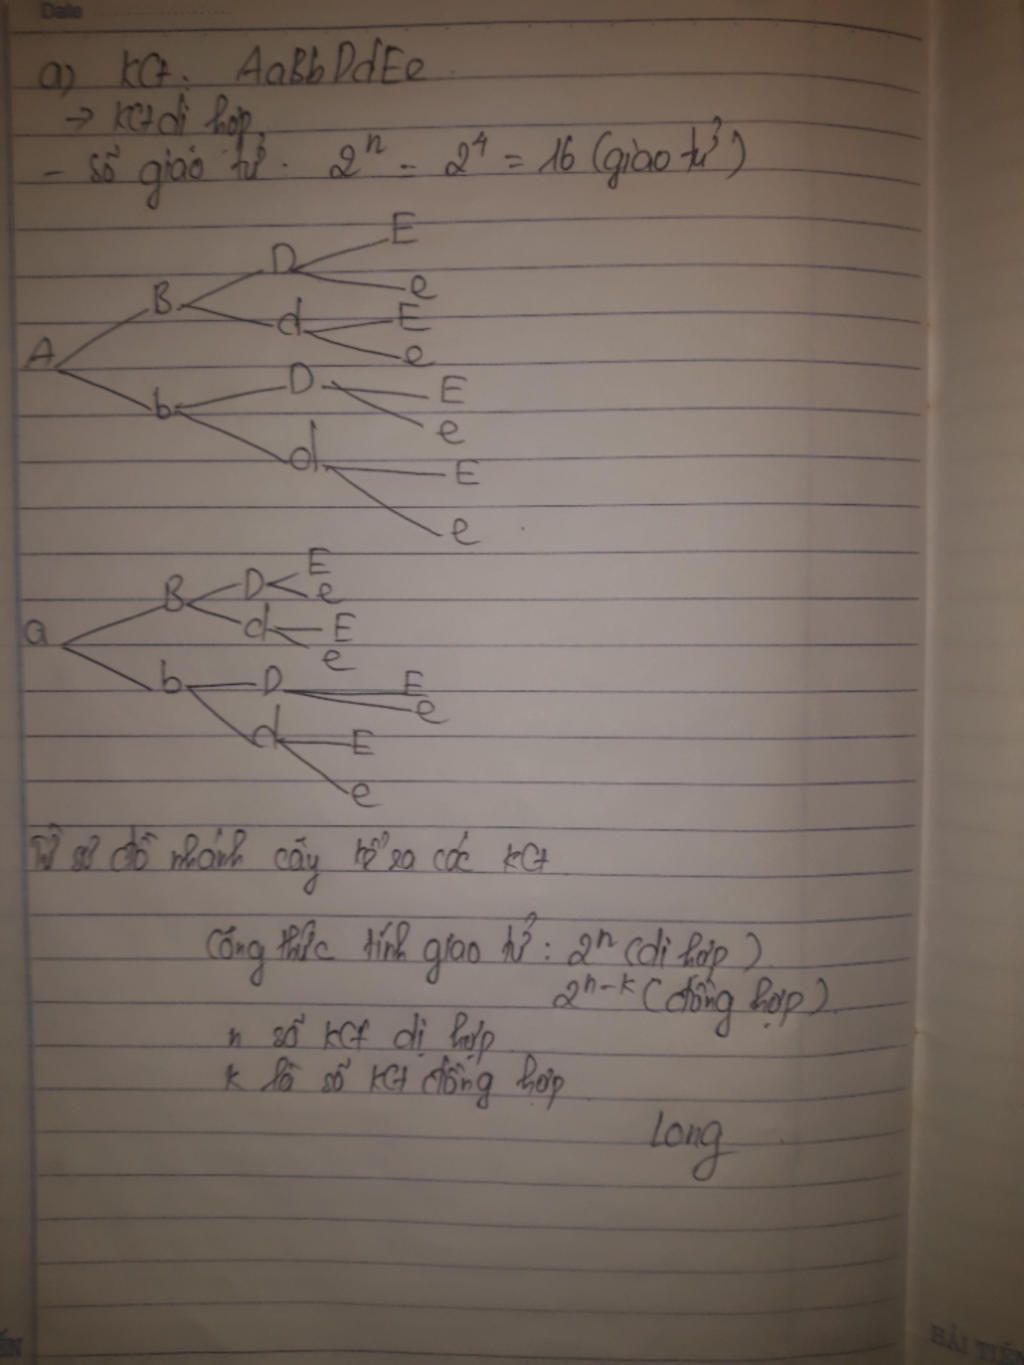 Date
a) KG: AaBbDdEe
→ KG dị hợp.
- số giao tử: 2ⁿ = 2⁴ = 16 (giao tử)
E
D
e
B
d
E
e
A
b
D
E
e
d
E
e
B
D
E
e
a
d
E
e
b
D
E
e
d
E
e
Từ sơ đồ nhánh cây kể ra các KG
Công thức tính giao tử: 2ⁿ (dị hợp)
2ⁿ⁻ᵏ (đồng hợp)
n số KG dị hợp
k là số KG đồng hợp
Long
HẢI TIẾN